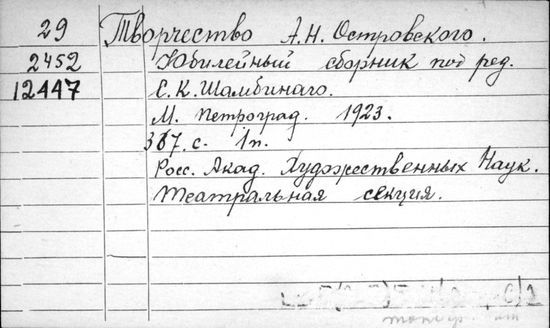 29 Творчество А.Н. Островского.
2452 Юбилейный сборник под ред.
12447 С.К. Шамбинаго.
М. Петроград. 1923.
367. с. 1п.
Росс. Акад. Художественных Наук.
Театральная секция.